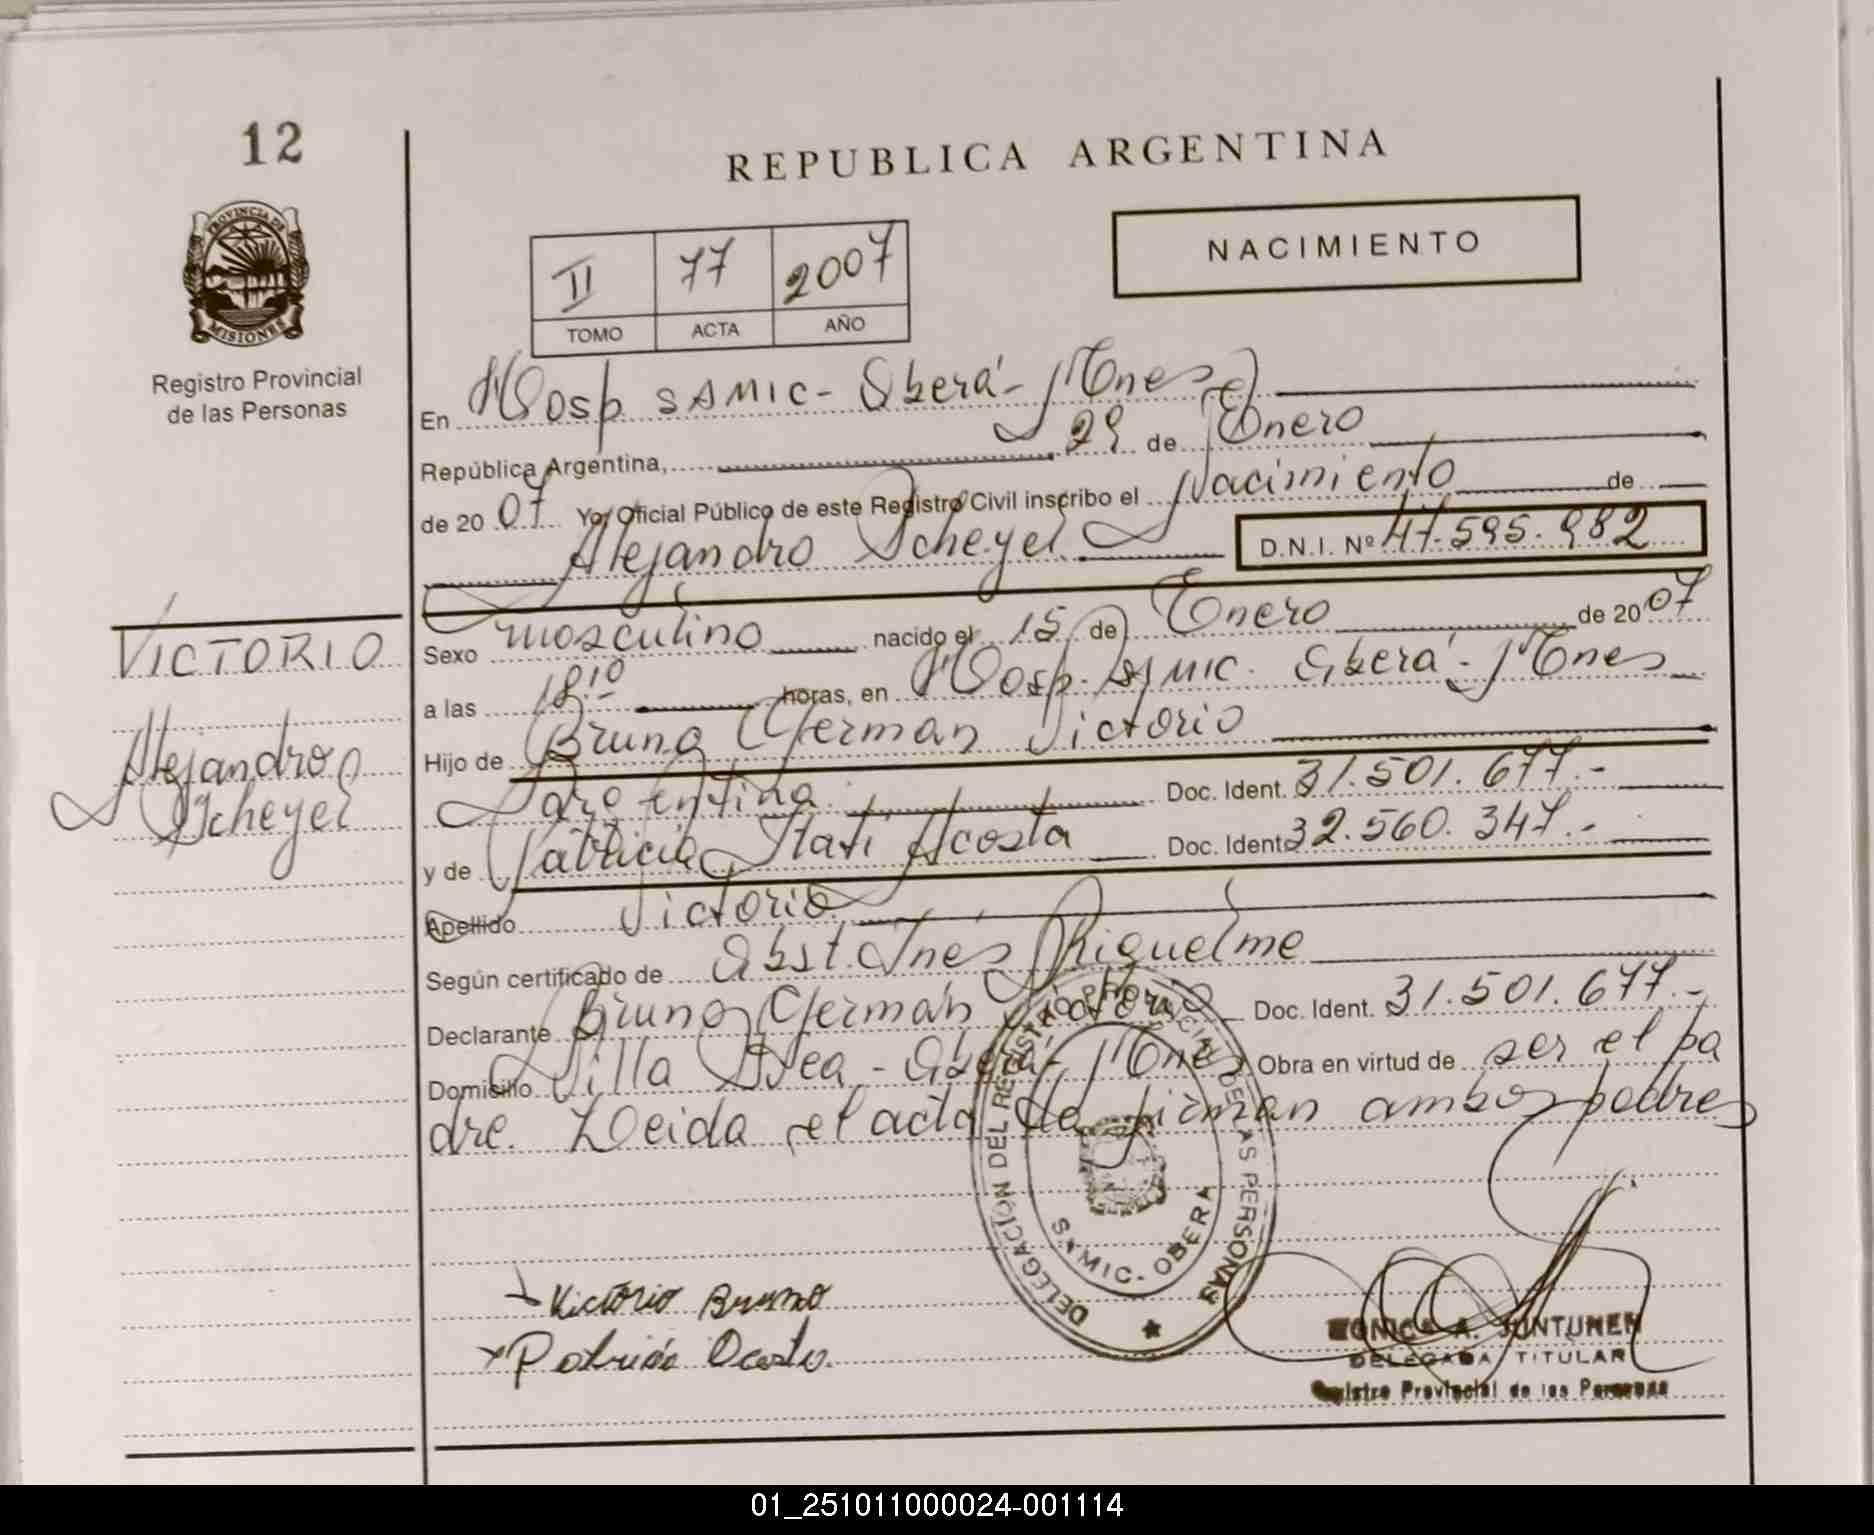 12
REPUBLICA ARGENTINA
PROVINCIA DE
MISIONES
Registro Provincial
de las Personas
NACIMIENTO
II 77 2007
TOMO ACTA AÑO
En Hosp SAMIC - Oberá - Mnes
República Argentina, 29 de Enero
de 20 07 Yo, Oficial Público de este Registro Civil inscribo el Nacimiento de
Alejandro Scheyel D.N.I. Nº 47.595.982
VICTORIO
Alejandro
Scheyel
Sexo masculino nacido el 15 de Enero de 20 07
a las 18:10 horas, en Hosp. SAMIC. Oberá - Mnes
Hijo de Bruno German Victorio
Argentina Doc. Ident. 31.501.677.-
y de Patricia Itatí Acosta Doc. Ident 32.560.347.-
Apellido Victorio
Según certificado de Obst. Inés Riquelme
Declarante Bruno Germán Victorio Doc. Ident. 31.501.677.-
Domicilio Villa - Oberá - Mnes Obra en virtud de ser el pa
dre. Leida el acta la firman ambos padres
DELEGACIÓN DEL REGISTRO PROVINCIAL DE LAS PERSONAS
SAMIC - OBERA
Victorio Bruno
Patricia Acosta.
MONICA A. JUNTUNEN
DELEGADA TITULAR
Registro Provincial de las Personas
01_251011000024-001114